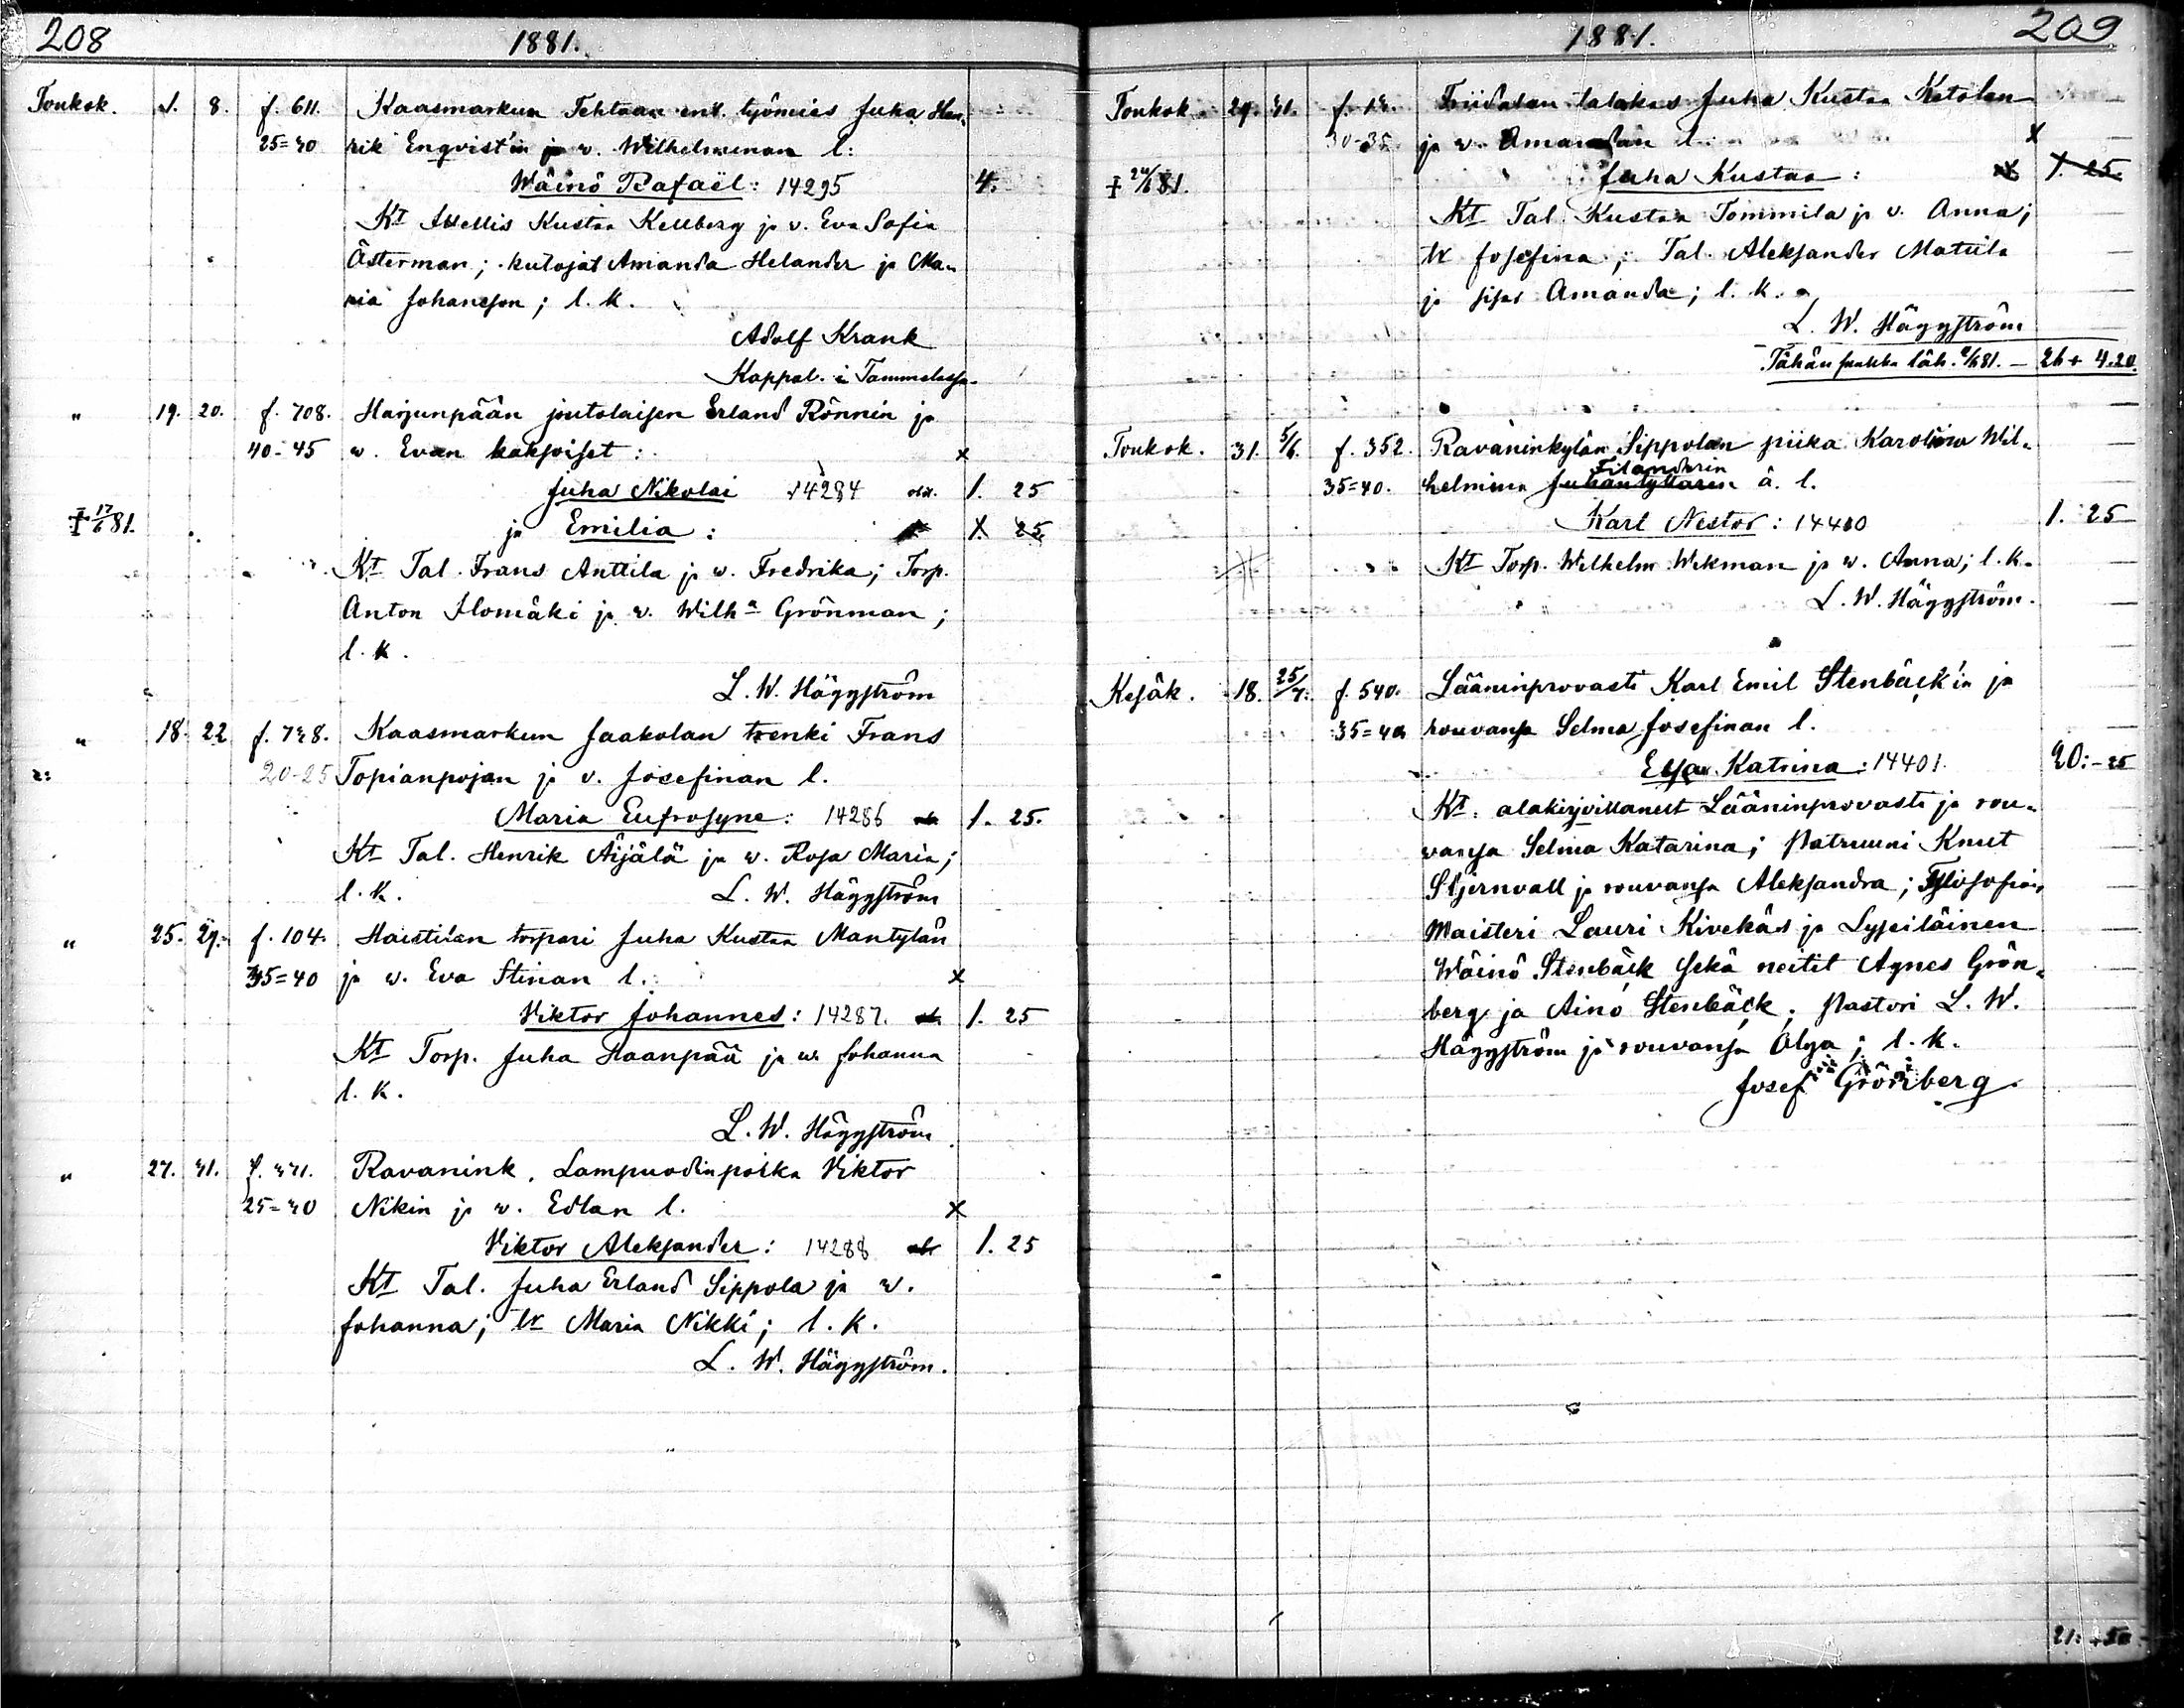 208
1881.
Toukok. 8. f. 611. Kaasmarkun Tehtaan ent. työmies Juha Hen-
25=30 rik Engvist'in ja v. Wilhelminan l:
Wäinö Rafaël: 14295 4.
Kt Itsellis Kustaa Kellberg ja v. Eva Sofia
Österman; kutojat Amanda Helander ja Ma-
ria Johansson; l. k.
Adolf Krank
Kappal. i Tammelassa.
" 19. 20. f. 708. Harjunpään joutolaisen Erland Rönnin ja
40-45 w. Evan kaksoiset: x
Juha Nikolai 14284 1. 25
‡ 17/6 81. ja Emilia: 1. 25
Kt Tal. Frans Anttila ja w. Fredrika; Torp.
Anton Ilomäki ja v. Wilha Grönman;
l. k.
L. W. Häggström
" 18. 22 f. 738. Kaasmarkun Jaakolan trenki Frans
20-25 Topianpojan ja v. Josefinan l.
Maria Eufrosyne: 14286 1. 25.
Kt Tal. Henrik Äijälä ja w. Rosa Maria;
l. k. L. W. Häggström
" 25. 29. f. 104. Haistilan torpari Juha Kustaa Mantylän
35=40 ja w. Eva Stinan l. x
Viktor Johannes: 14287. 1. 25
Kt Torp. Juha Haanpää ja w. Johanna
l. k.
L. W. Häggström
" 27. 31. f. 331. Ravanink. Lampuodin poika Viktor
25=30 Nikin ja w. Edlan l. x
Viktor Aleksander: 14288 1. 25
Kt Tal. Juha Erland Sippola ja w.
Johanna; tr Maria Nikki; l. k.
L. W. Häggström.
1881.
209
Toukok. 29. 31. f. 13. Friidalan talokas Juha Kustaa Ketolan
30-35. ja w. Amandan l. x
‡ 24/6 81. Juha Kustaa: 1. 25.
Kt Tal. Kustaa Tommila ja v. Anna;
tr Josefina; Tal. Aleksander Mattila
ja sisar Amanda; l. k.
L. W. Häggström
Tähän saakka läh. /6 81. — 26 + 4.20.
Toukok. 31. 5/6. f. 352. Ravaninkylän Sippolan piika Karolina Wil-
Filanderin
35=40. helmina Juhantyttären ä. l.
Karl Nestor: 14400 1. 25
Kt Torp. Wilhelm Wekman ja w. Anna; l. k.
L. W. Häggström.
Kesäk. 18. 25/7. f. 540. Lääninprovasti Karl Emil Stenbäck'in ja
35=40 rouvansa Selma Josefinan l.
Elsa Katrina: 14401. 20:-25
Kt. alakirjoittaneet Lääninprovasti ja rou-
vansa Selma Katarina; Patruuni Knut
Stjernvall ja rouvansa Aleksandra; Fylosofian
Maisteri Lauri Kivekäs ja Lyseiläinen
Wäinö Stenbäck sekä neitit Agnes Grön-
berg ja Aino Stenbäck; Pastori L. W.
Häggström ja rouvansa Olga; l. k.
Josef Grönberg.
21: +50